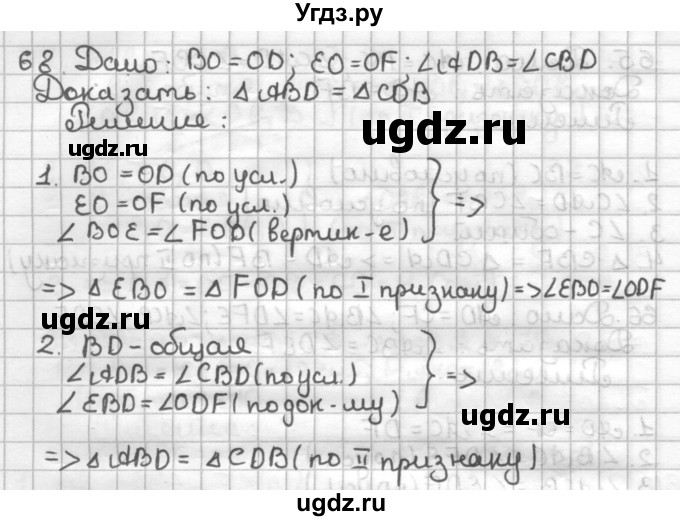 Угдз.ру
68. Дано: BO = OD; EO = OF; ∠ADB = ∠CBD
Доказать: △ABD = △CDB
Решение:
ugdz.ru
ugdz.ru
1. BO = OD (по усл.)
EO = OF (по усл.)
∠BOE = ∠FOD (вертик-е)
=>
=> △EBO = △FOD (по I признаку) => ∠EBO = ∠ODF
ugdz.ru
ugdz.ru
2. BD - общая
∠ADB = ∠CBD (по усл.)
∠EBD = ∠ODF (по док-му)
=>
ugdz.ru
ugdz.ru
=> △ABD = △CDB (по II признаку)
ugdz.ru